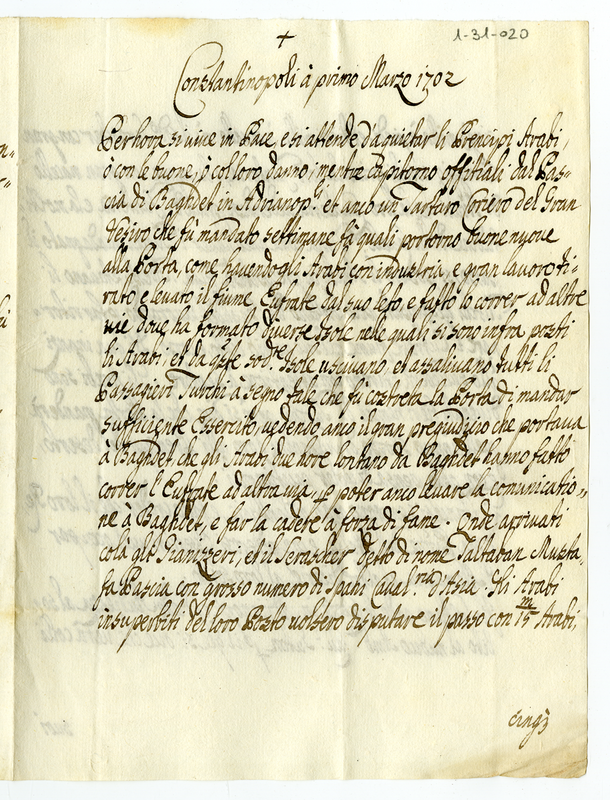 1-31-020
+
Constantinopoli à primo Marzo 1702
Perhora si vive in Pace, e si attende d'aquietar li Prencipi Arabi,
ò con le buone, ò col loro danno, mentre capitorno offitiali dal Pas=
cia di Baghdet in Adrianop.li et anco un Tartaro Coriero del Gran
Vesiro che fù mandato settimane fà quali portorno buone nuove
alla Porta, come havendo gli Arabi con industria, e gran lavoro ti=
rato e levato il fiume Eufrate dal suo leto, e fatto lo correr ad altre
vie dove ha formato diverse Isole nele quali si sono infra posti
li Arabi, et da q.ste sod.te Isole uscivano, et assalivano tutti li
Passagieri Turchi à segno tale che fù costreta la Porta di mandar
sufficiente Essercito vedendo anco il gran pregiudizio che portava
à Baghdet che gli Arabi due hore lontano da Baghdet hanno fatto
correr l'Eufrate ad altra via, p poter anco levare la comunicatio=
ne à Baghdet, e far la cadere à forza di fame. Onde arrivati
colà gli Gianizzeri, et il Serascher detto di nome Taltaban Musta=
fa Pascia con grosso numero di Spahi Caval.ria d'Asia. Gli Arabi
insuperbiti del loro Posto volsero disputare il passo con 15 m/ Arabi,